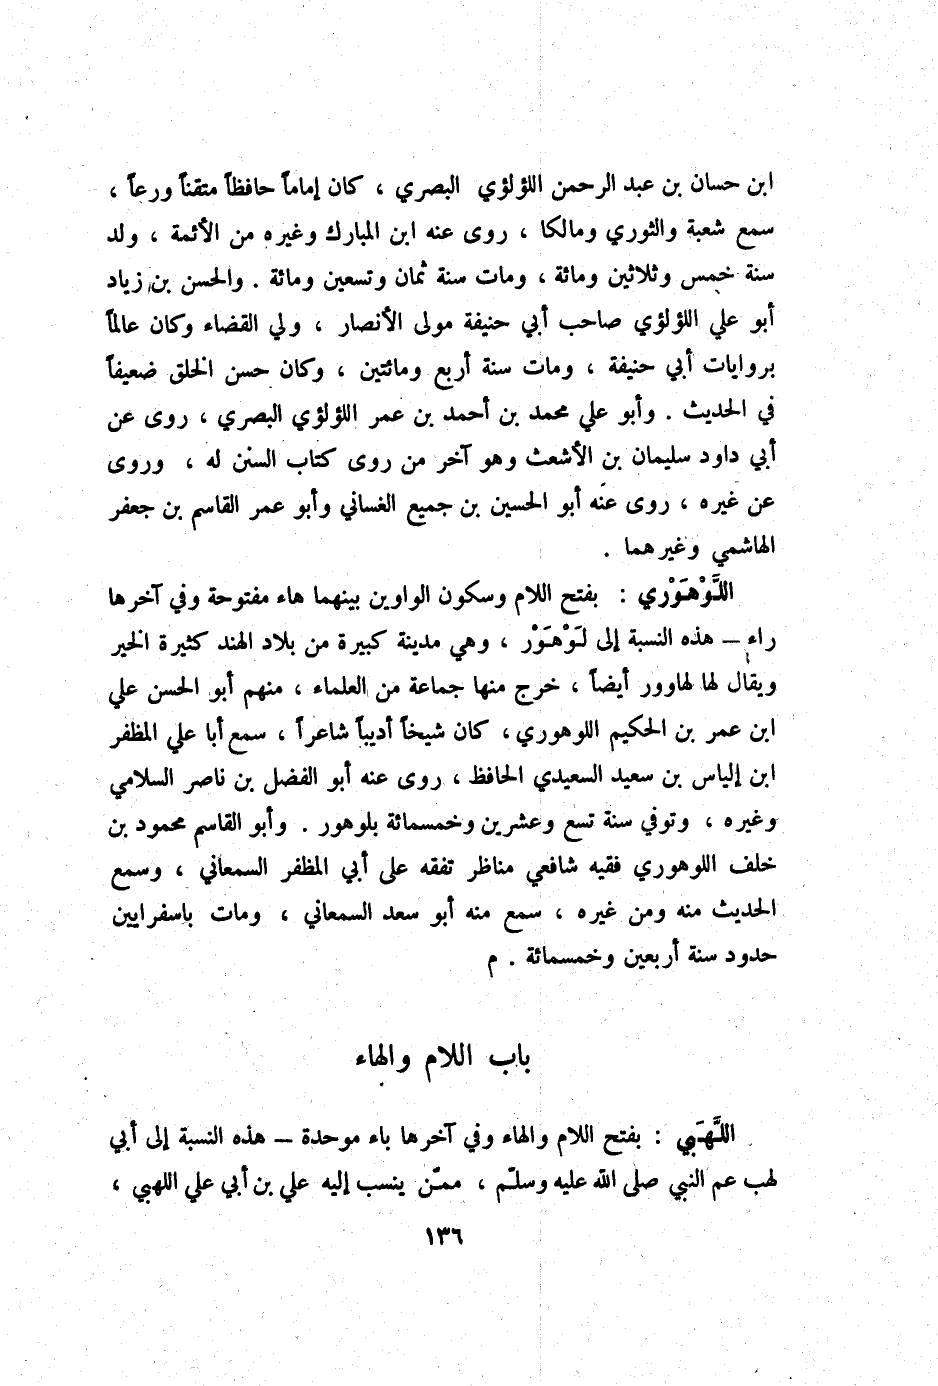 ابن حسان بن عبد الرحمن اللؤلؤي البصري ، كان إماماً حافظاً متقناً ورعاً ،
سمع شعبة والثوري ومالكا ، روى عنه ابن المبارك وغيره من الأئمة ، ولد
سنة خمس وثلاثين ومائة ، ومات سنة ثمان وتسعين ومائة . والحسن بن زياد
أبو علي اللؤلؤي صاحب أبي حنيفة مولى الأنصار ، ولي القضاء وكان عالماً
بروايات أبي حنيفة ، ومات سنة أربع ومائتين ، وكان حسن الخلق ضعيفاً
في الحديث . وأبو علي محمد بن أحمد بن عمر اللؤلؤي البصري ، روى عن
أبي داود سليمان بن الأشعث وهو آخر من روى كتاب السنن له ، وروى
عن غيره ، روى عنه أبو الحسين بن جميع الغساني وأبو عمر القاسم بن جعفر
الهاشمي وغيرهما .
اللَّوْهَوْري : بفتح اللام وسكون الواوين بينهما هاء مفتوحة وفي آخرها
راء – هذه النسبة إلى لَوْهَوْر ، وهي مدينة كبيرة من بلاد الهند كثيرة الخير
ويقال لها لهاوور أيضاً ، خرج منها جماعة من العلماء ، منهم أبو الحسن علي
ابن عمر بن الحكيم اللوهوري، كان شيخاً أديباً شاعراً ، سمع أبا علي المظفر
ابن إلياس بن سعيد السعيدي الحافظ ، روى عنه أبو الفضل بن ناصر السلامي
وغيره ، وتوفي سنة تسع وعشرين وخمسمائة بلوهور . وأبو القاسم محمود بن
خلف اللوهوري فقيه شافعي مناظر تفقه على أبي المظفر السمعاني ، وسمع
الحديث منه ومن غيره ، سمع منه أبو سعد السمعاني ، ومات باسفرايين
حدود سنة أربعين وخمسمائة . م
باب اللام والهاء
اللَّهَبي : بفتح اللام والهاء وفي آخرها باء موحدة – هذه النسبة إلى أبي
لهب عم النبي صلى الله عليه وسلّم ، ممّن ينسب إليه علي بن أبي علي اللهبي ،
١٣٦